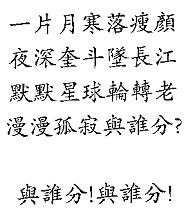 一片月寒落瘦顏
夜深奎斗墜長江
默默星球輪轉老
漫漫孤寂與誰分?
與誰分!與誰分!